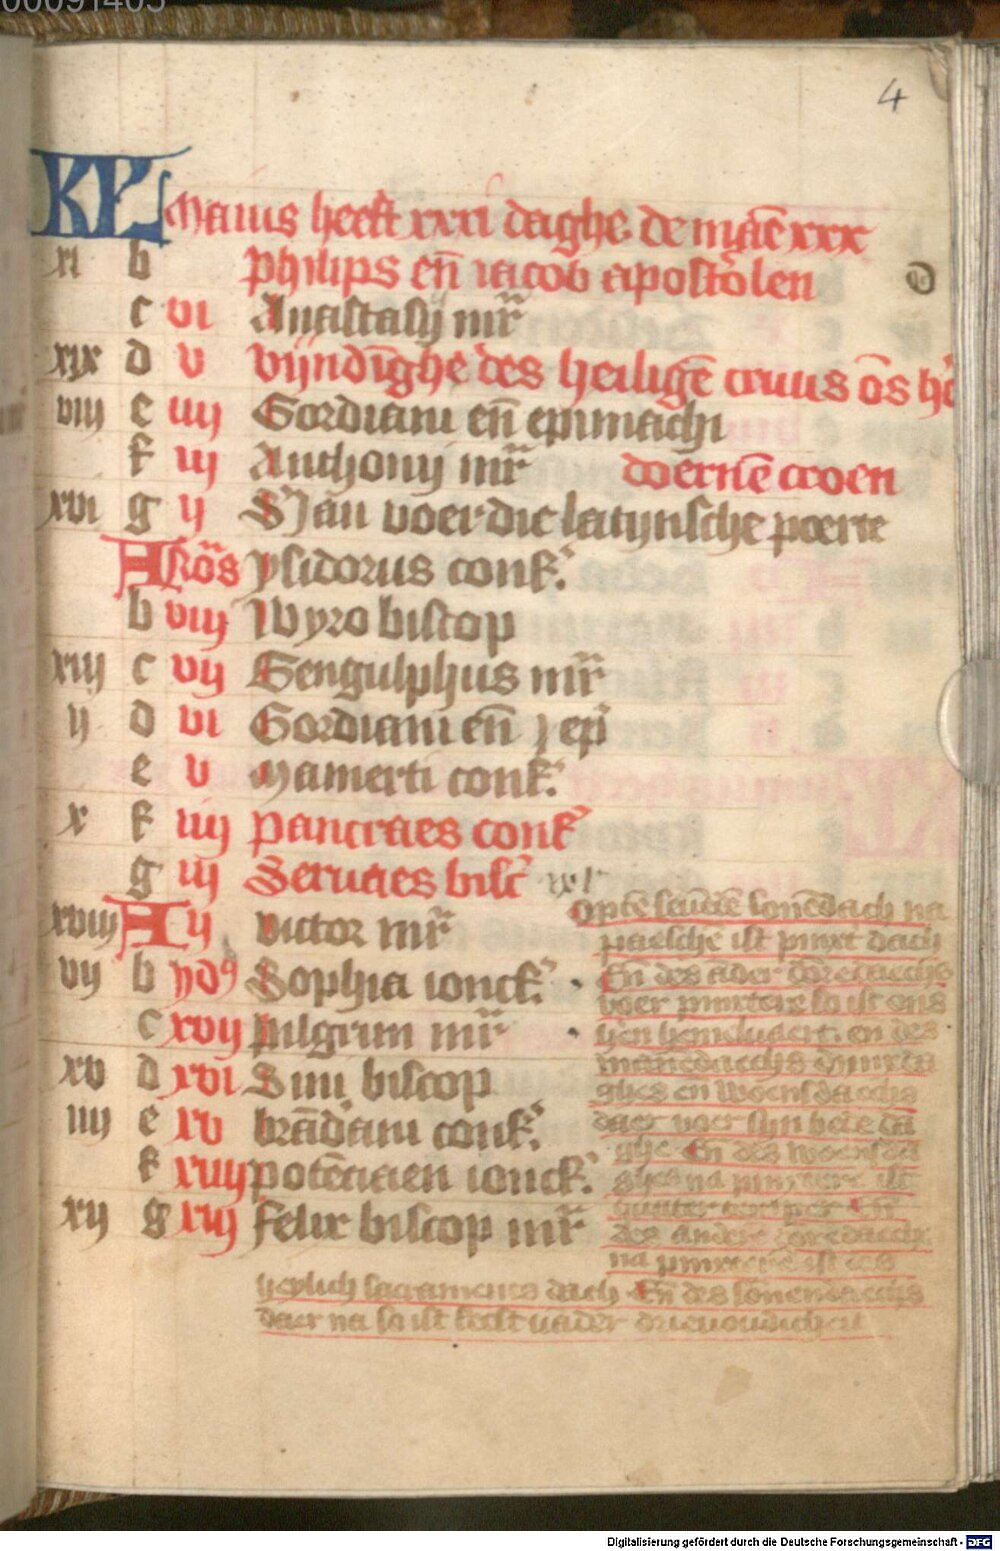 00091405
4
KL Maius heeft xxxi daghe. de māē xxx
xi b philips en̄ iacob apostolen
c vi Anastasij mr̄
xix d v vijndīghe des heiligē cruus ōs hē
viij e iiij Gordiani en̄ epimachi
f iij Anthonij mr̄ doernē croen
xvi g ij S Jan voer die latijnsche poerte
A Nōs ysidorus conf.
b viij Wyro biscop
xiij c vij Gengulphus mr̄
ij d vi Gordiani en̄ epī
e v Mamerti conf.
x f iiij pancraes conf
g iij Seruaes bisc
xviij A ij victor mr̄
vij b ydꝰ Sophia ioncf.
c xvij pilgrim mr̄
xv d xvi Simi biscop
iiij e xv brādani conf.
f xiiij potēciaen ionckf.
xij g xiij felix biscop mr̄
Optē seuēdē sonēdach na
paeschē ist pinxt dach
En des āder dōredaechs
voer pinxterē so ist ons
hen hemeluaert. en des
manēdaechs dinxda
ghes en woensdaechs
daer voer sijn bede da
ghe En des woensda
ghes na pinxterē ist
quater temper En
des andere dōredaechs
na pinxterē ist des
heylich sacraments dach En des sonendaechs
daer na so ist feest vader drieuoudicheit
Digitalisierung gefördert durch die Deutsche Forschungsgemeinschaft - DFG